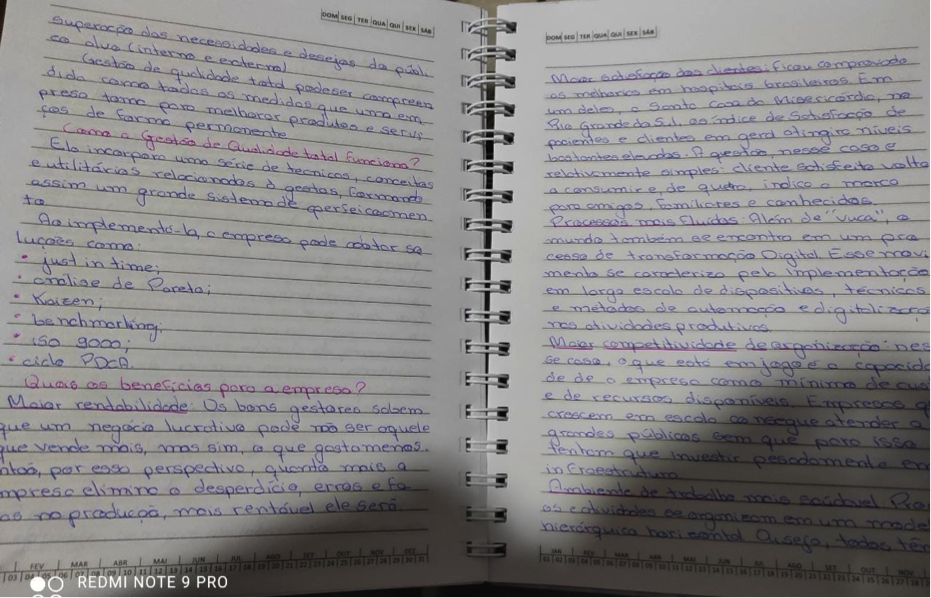 DOM SEG TER QUA QUI SEX SÁB
superação das necessidades e desejos do públi
co alvo (interno e externo)
Gestão de qualidade total podeser compreen
dida como todas as medidas que uma em,
presa tome para melhorar produtos e servi
ços de forma permanente
Como a Gestão de Qualidade total Funciona?
Ela incorpora uma série de tecnicas, conceitos
e utilitários relacionados à gestão, formando
assim um grande sistema de aperfeicoamen
to
Ao implementá-la, a empresa pode adotar so
luções como:
• just in time;
• análise de Pareto;
• Kaizen;
• benchmarking;
• iso 9000;
• ciclo PDCA.
Quais os beneficios para a empresa?
Maior rentabilidade: Os bons gestores sabem
que um negócio lucrativo pode não ser aquele
que vende mais, mas sim, o que gasta menos.
ntão, por essa perspectiva, quanto mais a
mpresa elimina o desperdício, erros e fa
as na produção, mais rentável ele será
FEV MAR ABR MAI JUN JUL AGO SET OUT NOV DEZ
REDMI NOTE 9 PRO
DOM SEG TER QUA QUI SEX SÁB
Maior satisfação dos clientes: Ficou comprovado
as melhorias em hospitais brasileiros. Em
um deles, a Santa Casa da Misericórdia, no
Rio grande do Sul, os índice de Satisfação de
pacientes e clientes em geral atingiu níveis
bastantes elevados. A gestão, nesse caso e
relativamente simples: cliente satisfeito volta
a consumir e, de quebra, indica a marca
para amigos, familiares e conhecidos.
Processos mais fluidos: Além de "vuca", o
mundo também se encontra em um pro
cesso de transformação Digital. Esse movi
mento se caracteriza pela implementação
em larga escala de dispositivos, tecnicas
e metodos de automação e digitalização
nas atividades produtivas
Maior competitividade de organização: nes
se caso, o que está em jogo é a capacida
de de a empresa como mínimo de cus
e de recursos disponíveis. Empresas q
crescem em escala consegue atender a
grandes públicos sem que para isso
tenham que investir pesadamente em
infraestrutura
Ambiente de trabalho mais saudável
as e atividades se organizam em um mode
hierárquico horizontal. Ou seja, todos têm
JAN FEV MAR ABR MAI JUN JUL AGO SET OUT NOV